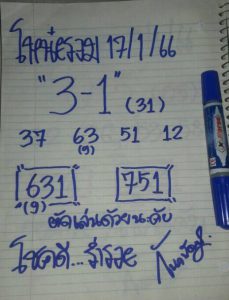 โชคดีรวย 17/1/66
"3-1" (31)
37 63 51 12
(9)
631 751
(9)
ตัดเล่นด้วยนะครับ
โชคดี...ร่ำรวย